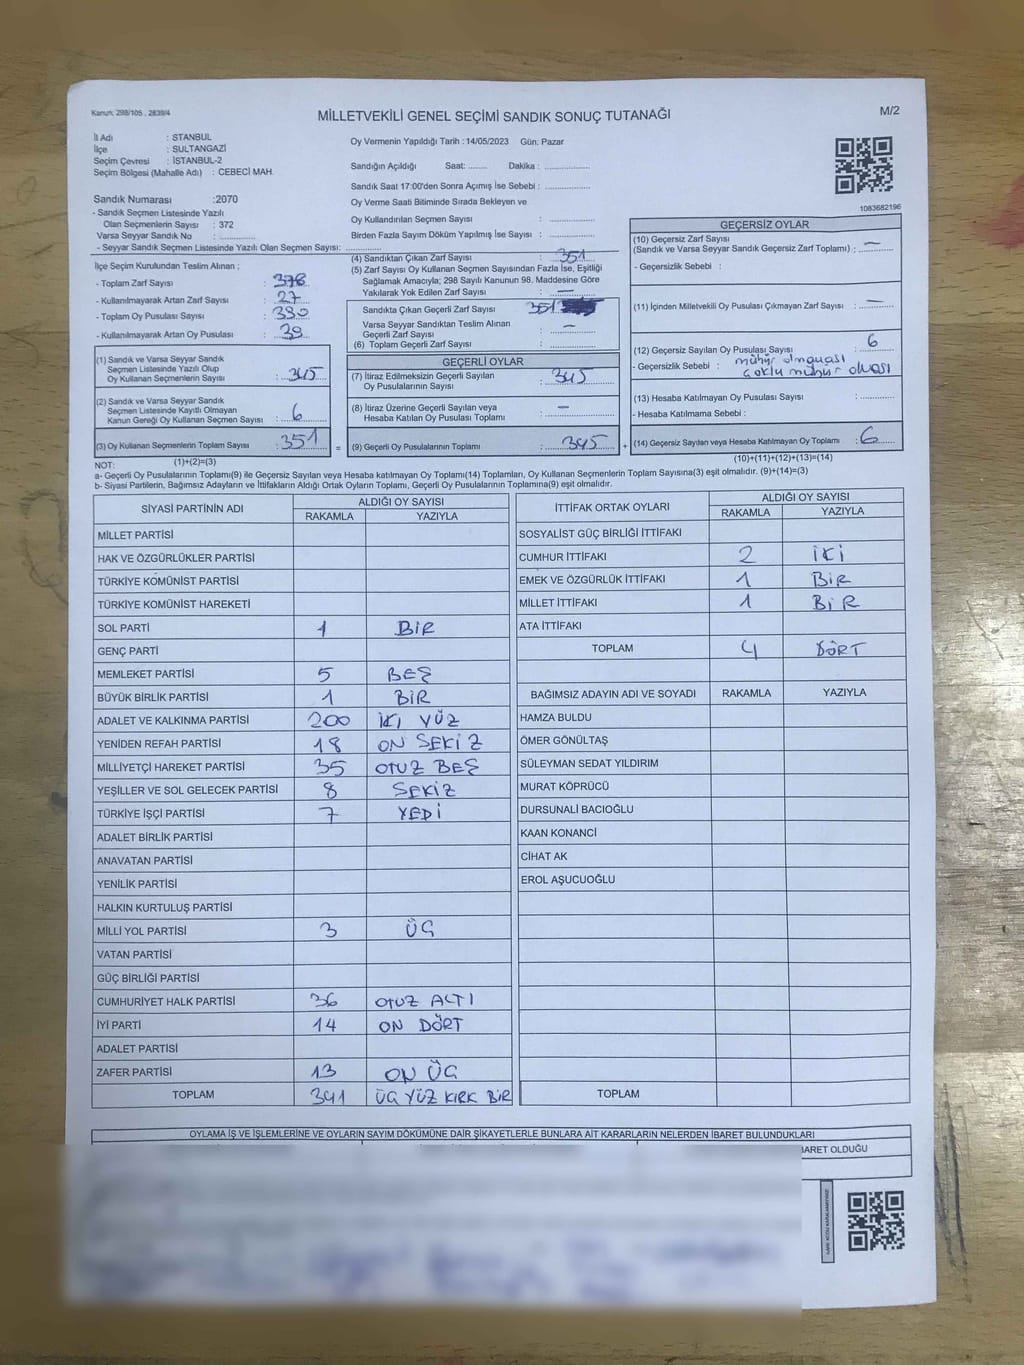 Kanun: 298/105 , 2839/4
MİLLETVEKİLİ GENEL SEÇİMİ SANDIK SONUÇ TUTANAĞI
M/2
İl Adı : İSTANBUL
İlçe : SULTANGAZİ
Seçim Çevresi : İSTANBUL-2
Seçim Bölgesi (Mahalle Adı) : CEBECİ MAH.
Sandık Numarası :2070
- Sandık Seçmen Listesinde Yazılı
Olan Seçmenlerin Sayısı : 372
Varsa Seyyar Sandık No :
- Seyyar Sandık Seçmen Listesinde Yazılı Olan Seçmen Sayısı:
Oy Vermenin Yapıldığı Tarih : 14/05/2023 Gün: Pazar
Sandığın Açıldığı Saat: Dakika :
Sandık Saat 17:00'den Sonra Açımış İse Sebebi :
Oy Verme Saati Bitiminde Sırada Bekleyen ve
Oy Kullandırılan Seçmen Sayısı :
Birden Fazla Sayım Döküm Yapılmış İse Sayısı :
1083682196
İlçe Seçim Kurulundan Teslim Alınan ;
- Toplam Zarf Sayısı : 378
- Kullanılmayarak Artan Zarf Sayısı : 27
- Toplam Oy Pusulası Sayısı : 380
- Kullanılmayarak Artan Oy Pusulası : 39
(1) Sandık ve Varsa Seyyar Sandık
Seçmen Listesinde Yazılı Olup
Oy Kullanan Seçmenlerin Sayısı : 345
(2) Sandık ve Varsa Seyyar Sandık
Seçmen Listesinde Kayıtlı Olmayan
Kanun Gereği Oy Kullanan Seçmen Sayısı : 6
(3) Oy Kullanan Seçmenlerin Toplam Sayısı : 351
(1)+(2)=(3)
(4) Sandıktan Çıkan Zarf Sayısı : 351
(5) Zarf Sayısı Oy Kullanan Seçmen Sayısından Fazla İse, Eşitliği
Sağlamak Amacıyla; 298 Sayılı Kanunun 98. Maddesine Göre
Yakılarak Yok Edilen Zarf Sayısı : —
Sandıkta Çıkan Geçerli Zarf Sayısı : 351
Varsa Seyyar Sandıktan Teslim Alınan
Geçerli Zarf Sayısı : —
(6) Toplam Geçerli Zarf Sayısı :
GEÇERLİ OYLAR
(7) İtiraz Edilmeksizin Geçerli Sayılan
Oy Pusulalarının Sayısı : 345
(8) İtiraz Üzerine Geçerli Sayılan veya
Hesaba Katılan Oy Pusulası Toplamı : —
= (9) Geçerli Oy Pusulalarının Toplamı : 345 +
GEÇERSİZ OYLAR
(10) Geçersiz Zarf Sayısı
(Sandık ve Varsa Seyyar Sandık Geçersiz Zarf Toplamı) : —
- Geçersizlik Sebebi :
(11) İçinden Milletvekili Oy Pusulası Çıkmayan Zarf Sayısı : —
(12) Geçersiz Sayılan Oy Pusulası Sayısı : 6
- Geçersizlik Sebebi : mühür olmaması
çoklu mühür olması
(13) Hesaba Katılmayan Oy Pusulası Sayısı :
- Hesaba Katılmama Sebebi :
(14) Geçersiz Sayılan veya Hesaba Katılmayan Oy Toplamı : 6
(10)+(11)+(12)+(13)=(14)
NOT:
a- Geçerli Oy Pusulalarının Toplamı(9) ile Geçersiz Sayılan veya Hesaba katılmayan Oy Toplamı(14) Toplamları, Oy Kullanan Seçmenlerin Toplam Sayısına(3) eşit olmalıdır. (9)+(14)=(3)
b- Siyasi Partilerin, Bağımsız Adayların ve İttifakların Aldığı Ortak Oyların Toplamı, Geçerli Oy Pusulalarının Toplamına(9) eşit olmalıdır.
SİYASİ PARTİNİN ADI ALDIĞI OY SAYISI
RAKAMLA YAZIYLA
MİLLET PARTİSİ
HAK VE ÖZGÜRLÜKLER PARTİSİ
TÜRKİYE KOMÜNİST PARTİSİ
TÜRKİYE KOMÜNİST HAREKETİ
SOL PARTİ 1 BİR
GENÇ PARTİ
MEMLEKET PARTİSİ 5 BEŞ
BÜYÜK BİRLİK PARTİSİ 1 BİR
ADALET VE KALKINMA PARTİSİ 200 İKİ YÜZ
YENİDEN REFAH PARTİSİ 18 ON SEKİZ
MİLLİYETÇİ HAREKET PARTİSİ 35 OTUZ BEŞ
YEŞİLLER VE SOL GELECEK PARTİSİ 8 SEKİZ
TÜRKİYE İŞÇİ PARTİSİ 7 YEDİ
ADALET BİRLİK PARTİSİ
ANAVATAN PARTİSİ
YENİLİK PARTİSİ
HALKIN KURTULUŞ PARTİSİ
MİLLİ YOL PARTİSİ 3 ÜÇ
VATAN PARTİSİ
GÜÇ BİRLİĞİ PARTİSİ
CUMHURİYET HALK PARTİSİ 36 OTUZ ALTI
İYİ PARTİ 14 ON DÖRT
ADALET PARTİSİ
ZAFER PARTİSİ 13 ON ÜÇ
TOPLAM 341 ÜÇ YÜZ KIRK BİR
İTTİFAK ORTAK OYLARI ALDIĞI OY SAYISI
RAKAMLA YAZIYLA
SOSYALİST GÜÇ BİRLİĞİ İTTİFAKI
CUMHUR İTTİFAKI 2 İKİ
EMEK VE ÖZGÜRLÜK İTTİFAKI 1 BİR
MİLLET İTTİFAKI 1 BİR
ATA İTTİFAKI
TOPLAM 4 DÖRT
BAĞIMSIZ ADAYIN ADI VE SOYADI RAKAMLA YAZIYLA
HAMZA BULDU
ÖMER GÖNÜLTAŞ
SÜLEYMAN SEDAT YILDIRIM
MURAT KÖPRÜCÜ
DURSUNALİ BACIOĞLU
KAAN KONANCİ
CİHAT AK
EROL AŞUCUOĞLU
TOPLAM
OYLAMA İŞ VE İŞLEMLERİNE VE OYLARIN SAYIM DÖKÜMÜNE DAİR ŞİKAYETLERLE BUNLARA AİT KARARLARIN NELERDEN İBARET BULUNDUKLARI
BARET OLDUĞU